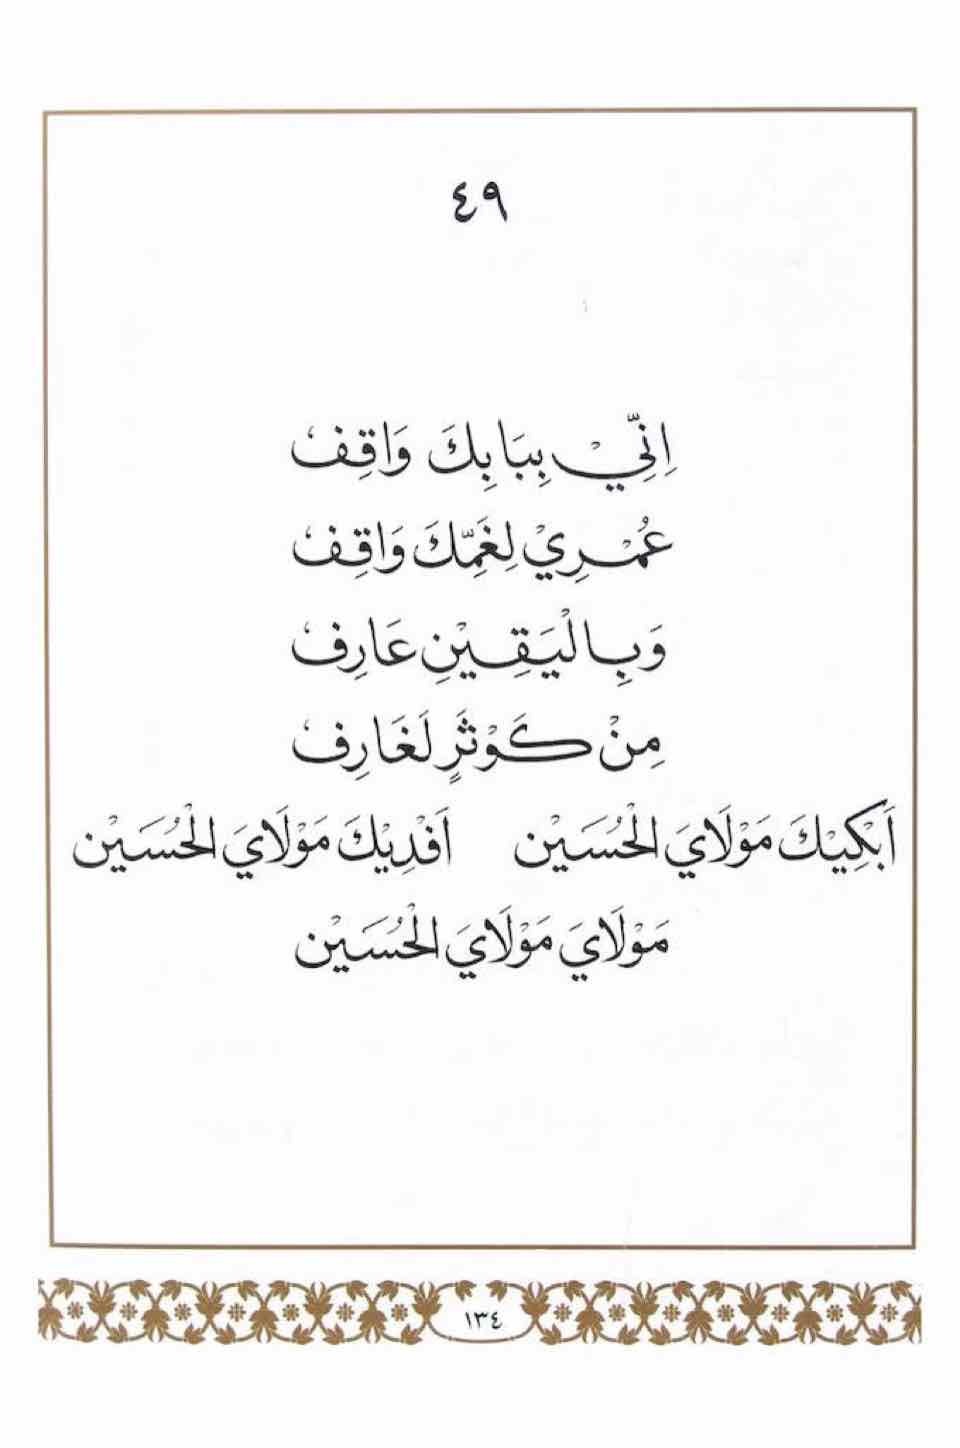 ٤٩
اِنِّيْ بِبَابِكَ وَاقِفْ
عُمْرِيْ لِغَمِّكَ وَاقِفْ
وَبِالْيَقِيْنِ عَارِفْ
مِنْ كَوْثَرٍ لَغَارِفْ
اَبْكِيْكَ مَوْلَايَ الْحُسَيْن اَفْدِيْكَ مَوْلَايَ الْحُسَيْن
مَوْلَايَ مَوْلَايَ الْحُسَيْن
١٣٤